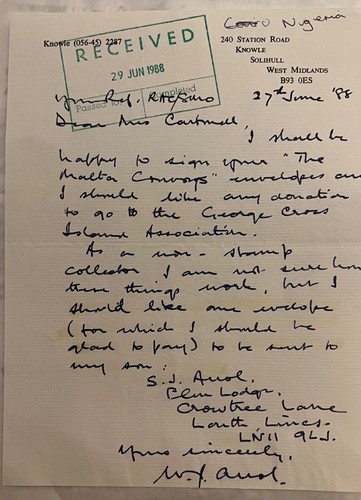 Cairo Nigeria
Knowle (056-45) 2287
240 STATION ROAD
KNOWLE
SOLIHULL
WEST MIDLANDS
B93 0ES
RECEIVED
29 JUN 1988
Passed to
Completed
Your Ref.
27th June '88
Dear Mrs
I shall be
happy to sign your "The
Malta Convoys" envelopes and
I should like any donation
to go to the George Cross
Island Association.
As a non-stamp
collector I am not sure how
these things work, but I
should like one envelope
(for which I should be
glad to pay) to be sent to
my son:
S.J.
Elm Lodge,
Crowtree Lane
Louth Lincs.
LN11 9LJ.
Yours sincerely,
W.J.